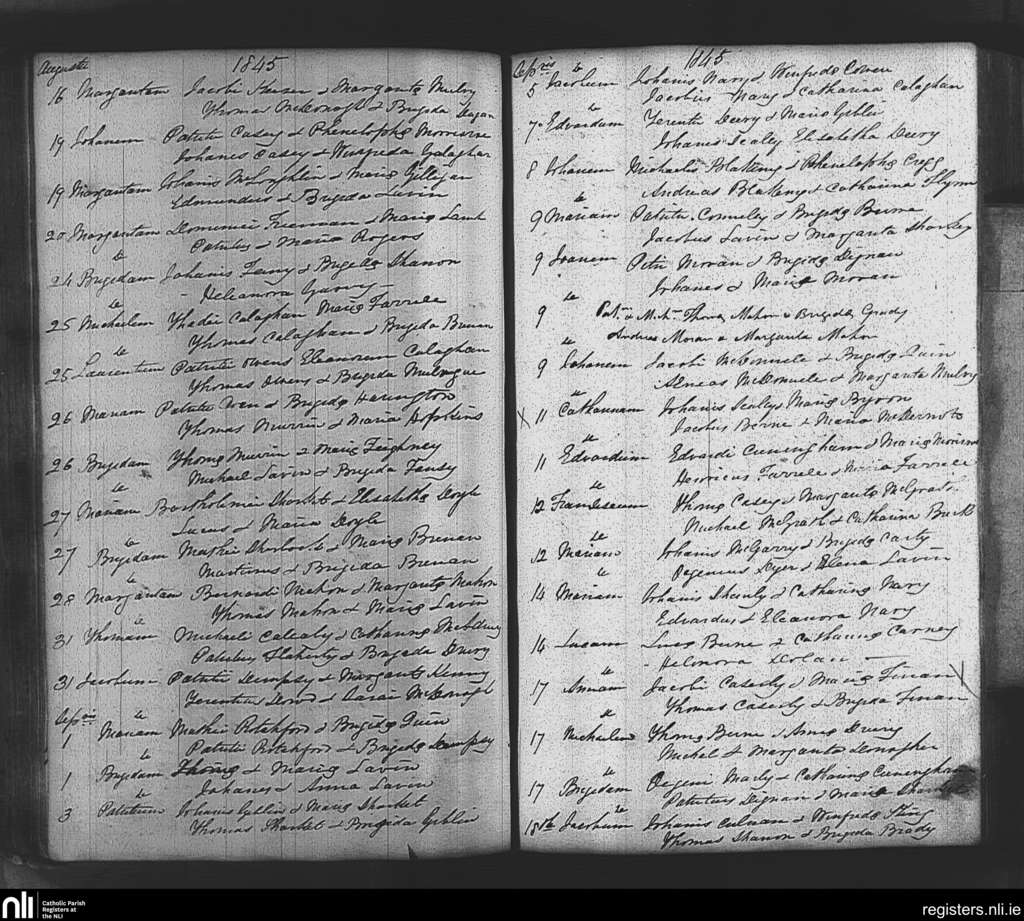 Augusti 1845
16 Margaritam Jacobi & Margarita Mulry
Thoma McDonagh & Brigida
19 Johanem Patritii Casey & Phenelopha Morrisroe
Johanes Casey & Winifreda Galaghar
19 Margaritam Johanis McLoghlin & Maria Gilligan
Edmundus & Brigida Lavin
20 Margaritam Dominici Freeman & Maria Lamb
Patritius & Maria Rogers
24 Brigidam Johanis Feeny & Brigida Shanon
Heleanora Garvey
25 Michaelem Thadei Calaghan Maria Farrele
Thomas Calaghan & Brigida Brenan
25 Laurentium Patritii Owens Eleanorum Calaghan
Thomas Owens & Brigida Mulregue
26 Mariam Patritii & Brigida Harington
Thomas Murrin & Maria Hopkins
26 Brigidam Thoma Murrin & Maria Feighney
Michael Lavin & Brigida
27 Mariam Bartholimei & Elizabetha Doyle
Lucas & Maria Doyle
27 Brigidam Mathei & Maria Brenan
Martinus & Brigida Brenan
28 Margaritam Bernardi Mahon & Margarita Mahon
Thomas Mahon & Maria Lavin
31 Thomam Michaeli & Catharina
Patritius Flaherty & Brigida Drury
31 Jacobum Patritii Dempsy & Margarita Kenny
Terentius & Sarah McDonagh
Sepris
1 Mariam Mathei Rotchford & Brigida Quin
Patritii Rotchford & Brigida Dempsy
1 Brigidam Thoma & Maria Lavin
Johanes & Anna Lavin
3 Patritium Johanis Giblin & Maria Sharket
Thomas Sharket & Brigida Giblin
Sepris 1845
5 Jacobum Johanis Nary & Winifreda Cowen
Jacobus Nary & Catharina Calaghan
7 Edvardum Terentii Deery & Maria Giblin
Johanis Scally Elizabetha Deery
8 Johanem Michaelis & Phenelopha Cregg
Andreas & Catharina Flynn
9 Mariam Patritii Conneley & Brigida Berne
Jacobus Lavin & Margarita Sharkey
9 Joanem Petri Moran & Brigida Dignan
Johanes & Maria Moran
9 Pat. & Mich. Thoma Mahon & Brigida Grady
Andreas Moran & Margarita Mahon
9 Johanem Jacobi & Brigida Quin
Aeneas & Margarita Mulry
11 Catharinam Johanis Scaley & Maria Byron
Jacobus Berne & Maria McDermot
11 Edvardum Edvardi Cuningham & Maria
Henricus Farrele & Maria Farrele
12 Thoma Casey & Margarita McGrath
Michael McGrath & Catharina Burk
12 Mariam Johanis McGarry & Brigida Carty
Oegenius & Elena Lavin
14 Mariam Johanis & Catharina Nary
Edvardus & Eleanora Nary
14 Lucam Luca Berne & Catharina Carney
Helenora Dolan
17 Annam Jacobi Caserly & Maria Finan
Thomas Caserly & Brigida Finan
17 Michaelem Thoma Berne & Anna Drury
Michel & Margarita
17 Brigidam Oegeni & Catharina Cuningham
Patritius Dignan & Maria
18th Jacobum Johanis & Winifreda King
Thomas Shanon & Brigida Brady
nli Catholic Parish
Registers at
the NLI
registers.nli.ie